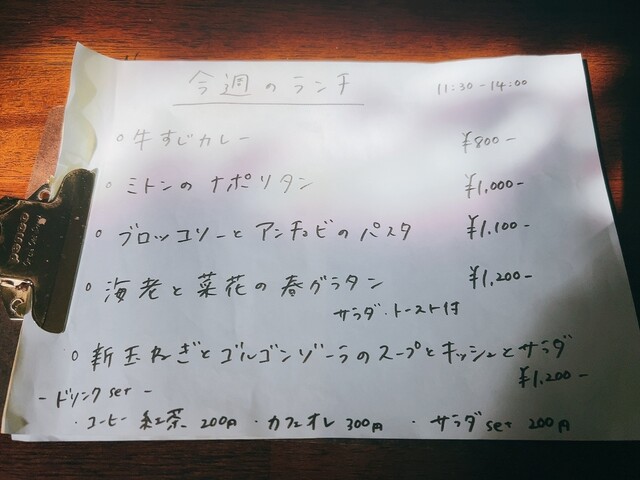 今週のランチ 11:30-14:00
○ 牛すじカレー ¥800-
○ ミトンのナポリタン ¥1,000-
○ ブロッコリーとアンチョビのパスタ ¥1,100-
○ 海老と菜花の春グラタン ¥1,200-
サラダ・トースト付
○ 新玉ねぎとゴルゴンゾーラのスープとキッシュとサラダ
¥1,200-
- ドリンク set -
・コーヒー 紅茶 200円 ・カフェオレ 300円 ・サラダ set 200円